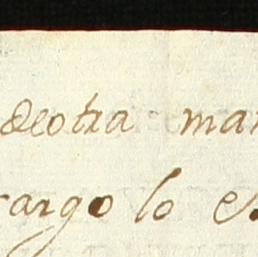 deotra mar
cargo lo es